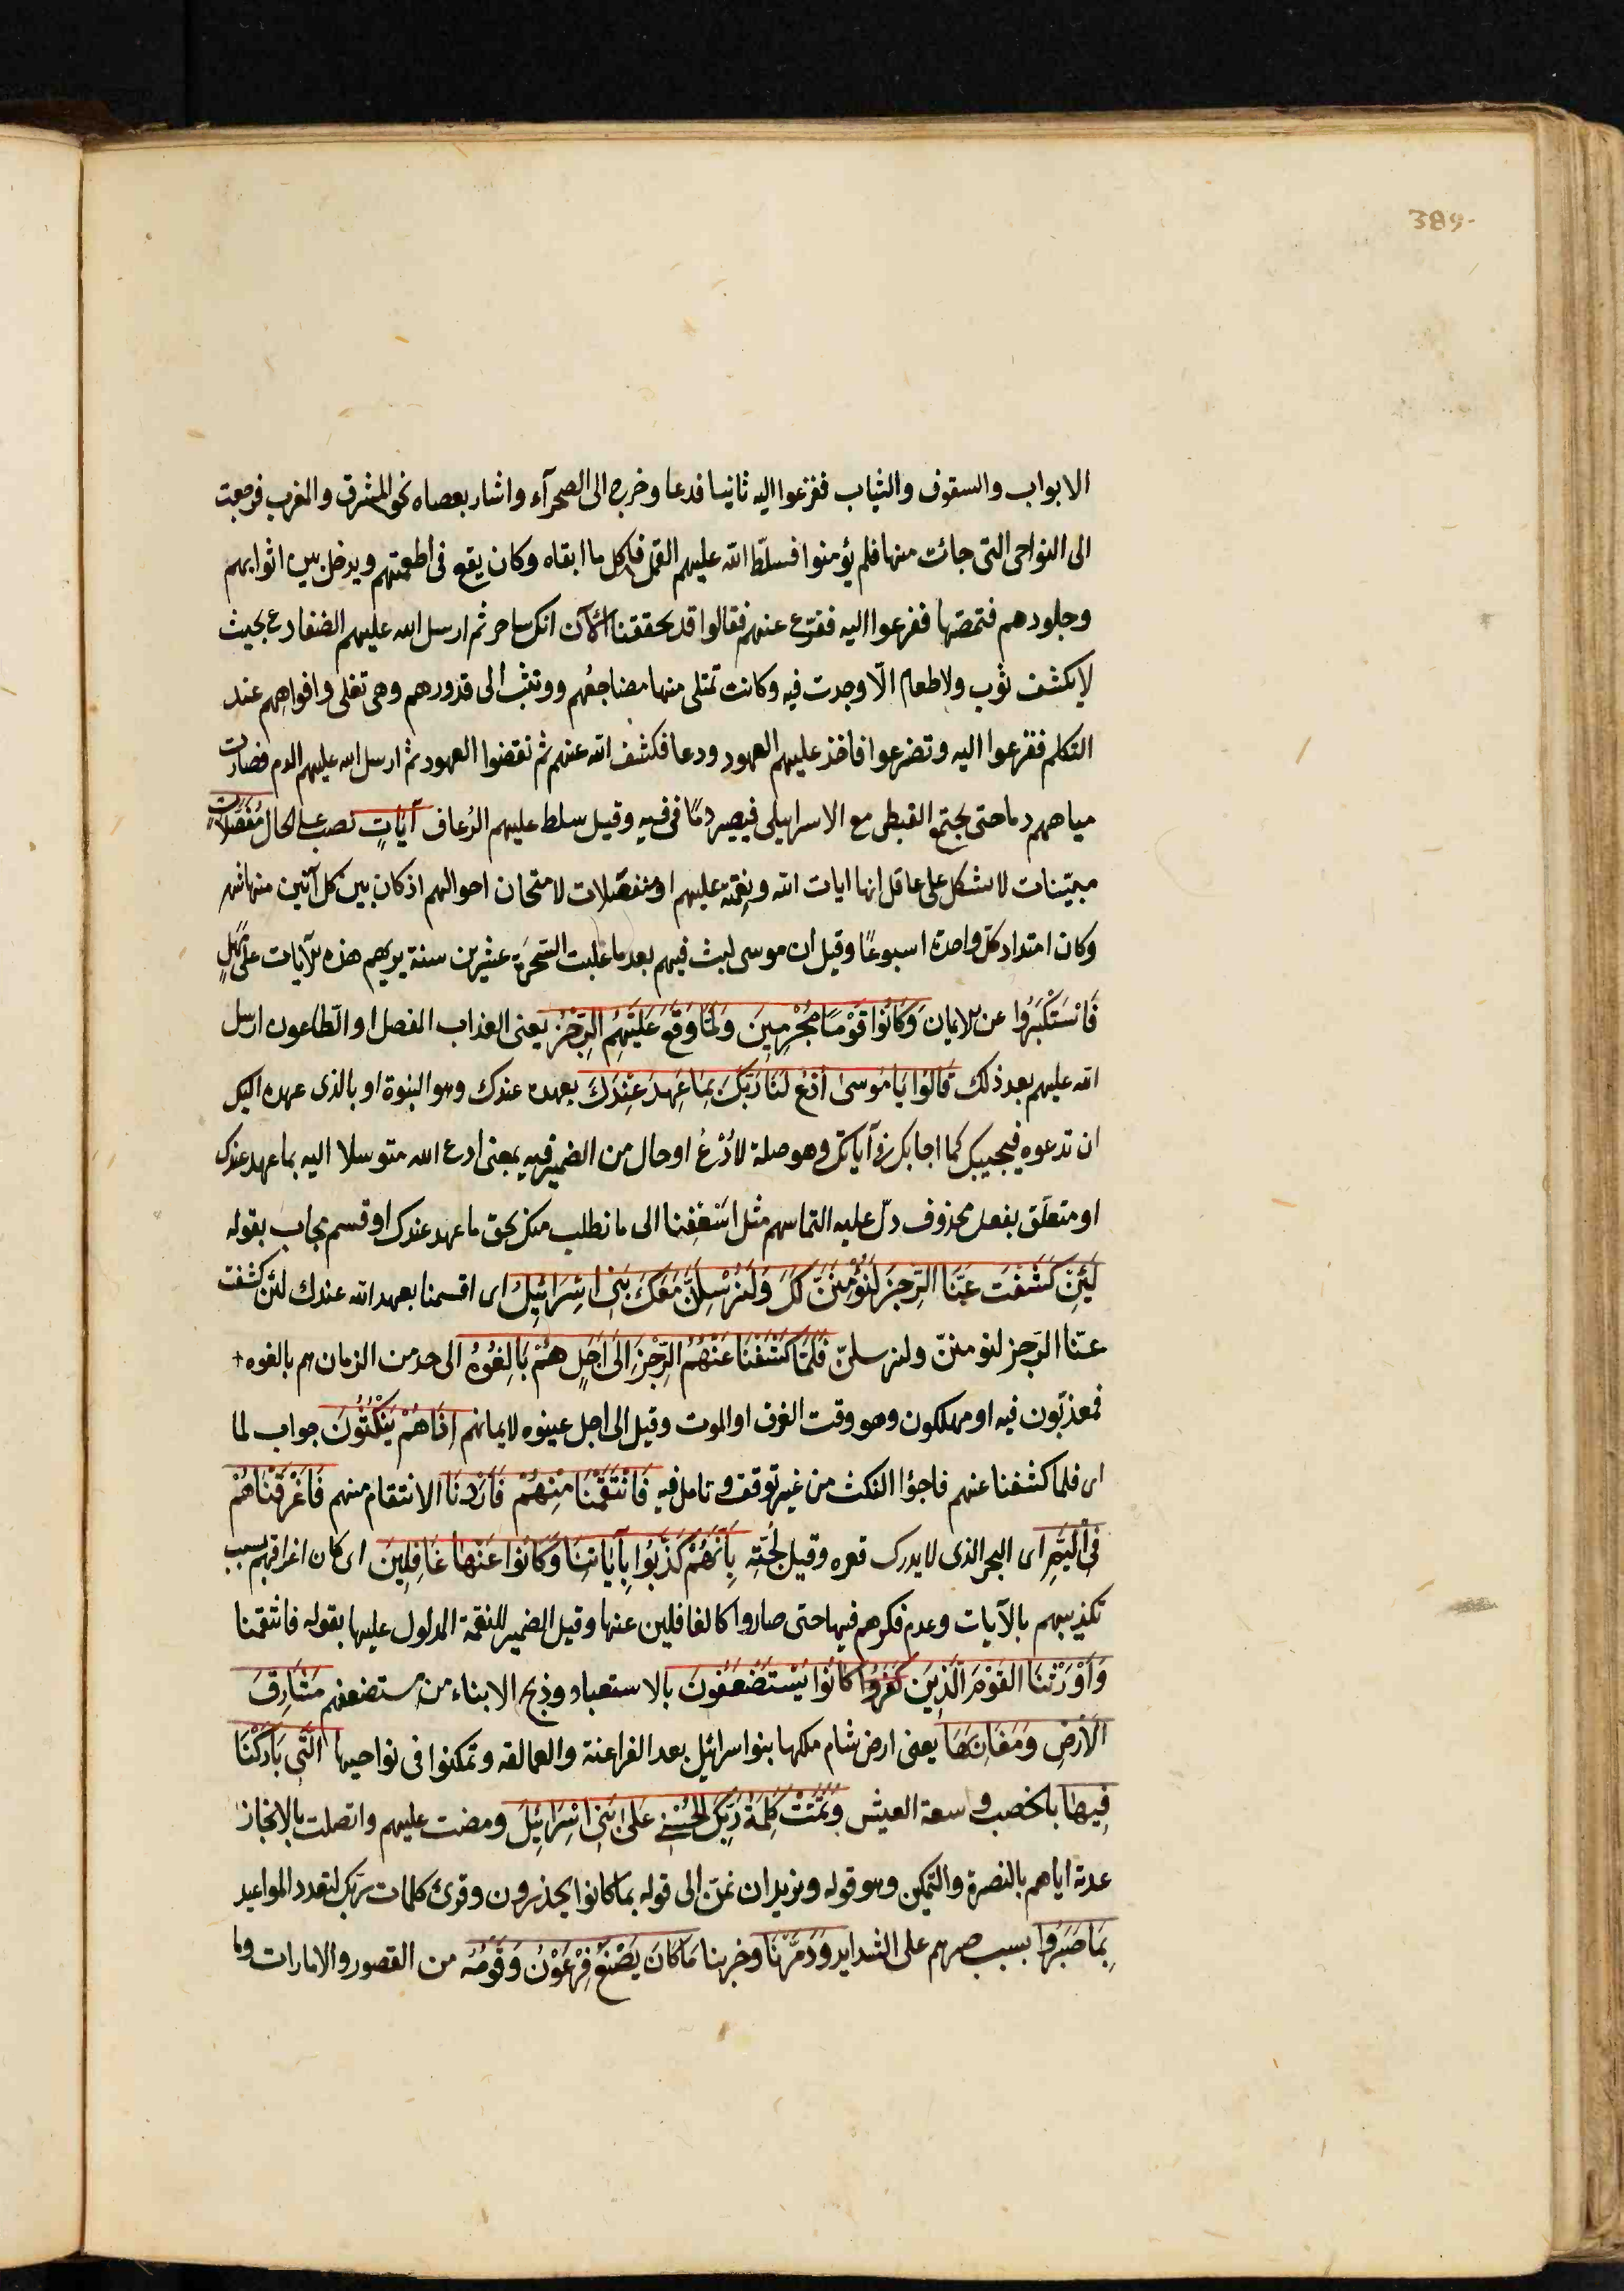 389
الابواب والسقوف والثياب ففزعوا اليه ثانيا فدعا وخرج الى الصحرآء واشار بعصاه نحو المشرق والمغرب فرجعت
الى النواحى التى جائت منها فلم يؤمنوا فسلّط الله عليهم القمل فاكل ما ابقاه وكان يقع فى اطعمتهم ويدخل بين اثوابهم
وجلودهم فتمصّها ففزعوا اليه ففزع عنهم فقالوا قد تحققنا الآن انك ساحر ثم ارسل الله عليهم الضفادع بحيث
لا يكشف ثوب ولا طعام الّا وجدت فيه وكانت تمتلى منها مضاجعُهم ووتثب الى قدورهم وهى تغلى وافواههم عند
التكلم ففزعوا اليه وتضرعوا فاخذ عليهم العهود ودعا فكشف الله عنهم ثم نقضوا العهود ثم ارسل الله عليهم الدم فصارت
مياههم دما حتى يجتمع القبطى مع الاسرايلى فيصير دمًا فى فيه وقيل سلط عليهم الرُعاف آيَاتٍ نصب على الحال مُفَصَّلَاتٍ
مبيّنات لا يشكل على عاقل انها ايات الله ونِقمته عليهم او منفصّلات لامتحان احوالهم اذ كان بين كل آتين منها شهر
وكان امتداد كلّ واحدة اسبوعًا وقيل ان موسى لبث فيهم بعد ما غلبت السّحَرة عشرين سنة يريهم هذه الآيات على مَهَلٍ
فَاسْتَكْبَرُوا عن الايمان وَكَانُوا قَوْمًا مُجْرِمِينَ وَلَمَّا وَقَعَ عَلَيْهِمُ الرِّجْزُ يعنى العذاب المفصل او الطاعون ارسل
الله عليهم بعد ذلك قَالُوا يَا مُوسىٰ ادْعُ لَنَا رَبَّكَ بِمَا عَهِدَ عِنْدَكَ بعهده عندك وهو النبوة او بالذى عهده اليك
ان تدعوه فيجيبك كما اجابك فى آياتك وهو صلة لادْعُ او حال من الضمير فيه بمعنى ادع الله متوسلا اليه بما عهد عندك
او متعلّق بفعل محذوف دلّ عليه التماسهم مثل اسْعِفنا الى ما نطلب منك بحق ما عهد عندك او قسم مجاب بقوله
لَئِنْ كَشَفْتَ عَنَّا الرِّجْزَ لَنُؤْمِنَنَّ لَكَ وَلَنُرْسِلَنَّ مَعَكَ بَنِى اسْرَائِيلَ اى اقسمنا بعهد الله عندك لئن كشفت
عنّا الرّجز لنومننّ ولنرسلنّ فَلَمَّا كَشَفْنَا عَنْهُمُ الرِّجْزَ اِلىٰ اَجَلٍ هُمْ بَالِغُوهُ الى حد من الزمان هم بالغوه
فمعذبّون فيه او مهلكون وهو وقت الغرق او الموت وقيل الى اجل عينوه لايمانهم اِذَا هُمْ يَنْكُثُونَ جواب لما
اى فلما كشفنا عنهم فاجؤا النكث من غير توقف وتامل فيه فَانْتَقَمْنَا مِنْهُمْ فَاَرَدْنَا الانتقام منهم فَاَغْرَقْنَاهُمْ
فِى الْيَمِّ اى البحر الذى لا يدرك قعره وقيل لُجّته بِاَنَّهُمْ كَذَّبُوا بِآيَاتِنَا وَكَانُوا عَنْهَا غَافِلِينَ اى كان اغراقهم بسبب
تكذيبهم بالآيات وعدم فكرهم فيها حتى صاروا كالغافلين عنها وقيل الضمير للنقمة المدلول عليها بقوله فانتقمنا
وَاَوْرَثْنَا القَوْمَ الَّذِينَ كَفَرُوا كَانُوا يُسْتَضْعَفُونَ بالاستعباد وذبح الابناء من مستضعفهم مَشَارِقَ
الْاَرْضِ وَمَغَارِبَهَا يعنى ارض شام ملكها بنو اسرائيل بعد الفراعنة والعمالقه وتمكنوا فى نواحيها الَّتِى بَارَكْنَا
فِيهَا بالخصب وسعة العيش وَتَمَّتْ كَلِمَةُ رَبِّكَ الحُسْنىٰ عَلىٰ بَنِى اسْرَائِيلَ ومضت عليهم واتصلت بالانجاز
عدته اياهم بالنصرة والتمكين وهو قوله ونريد ان نمنّ الى قوله بما كانوا يحذرون وقرئ كلمات ربك لتعدد المواعيد
بِمَا صَبَرُوا بسبب صبرهم على الشدايد وَدَمَّرْنَا وخربنا مَا كَانَ يَصْنَعُ فِرْعَوْنُ وَقَوْمُهُ من القصور والامارات وما